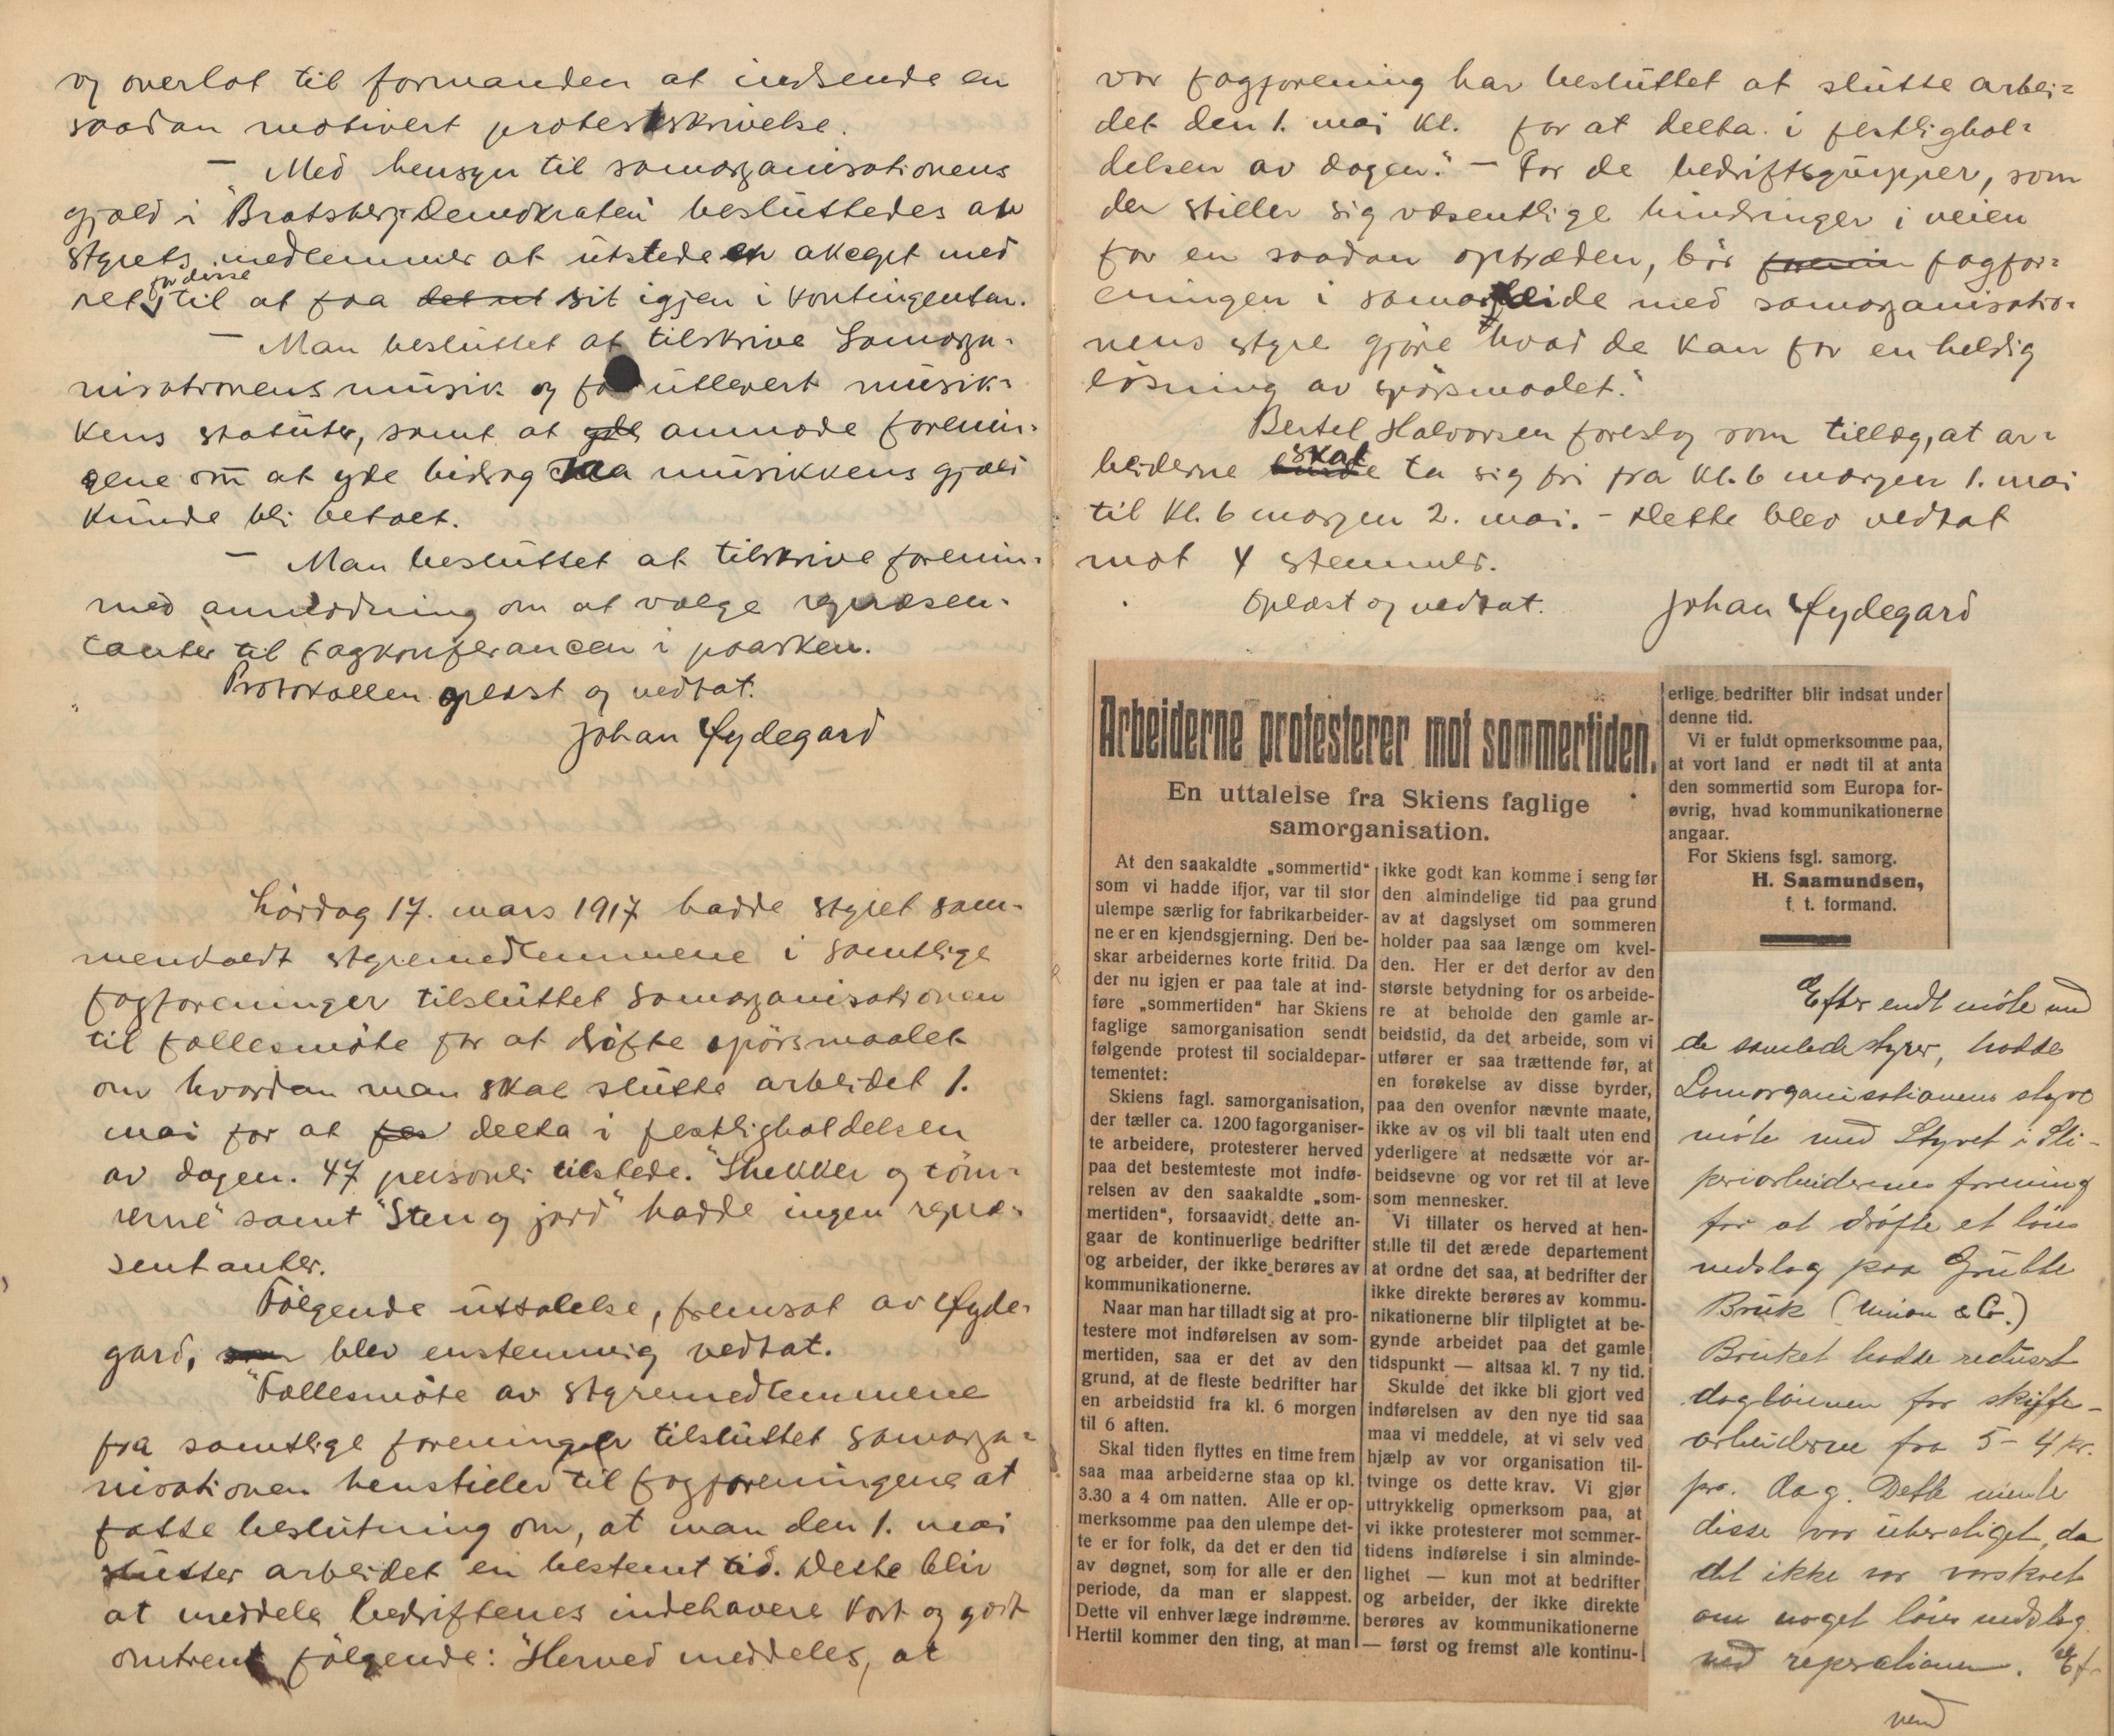 og overlot til formanden at indsende en
saadan motivert protestskrivelse.
— Med hensyn til samorganisationens
gjæld i "Bratsberg-Demokraten" besluttedes av
styrets medlemmer at utstede en akcept med
ret for disse til at faa det ut sit igjen i kontingenten.
— Man besluttet at tilskrive Samorga-
nisationens musik og faa utlevert musik-
kens statuter, samt at yde anmode forenin-
gene om at yde bidrag saa musikkens gjæld
kunde bli betalt.
— Man besluttet at tilskrive forenin-
med anmodning om at vælge repræsen-
tanter til fagkonferancen i paasken.
Protokollen oplæst og vedtat.
Johan Øydegard
Lørdag 17. mars 1917 hadde styret sam-
menkaldt styremedlemmene i samtlige
fagforeninger tilsluttet samorganisationen
til fællesmøte for at drøfte spørsmaalet
om hvordan man skal slutte arbeidet 1.
mai for at fes delta i festligholdelsen
av dagen. 47 personer tilstede. "Snekker og tøm-
rerne" samt "Sten og jord" hadde ingen repræ-
sentanter.
Følgende uttalelse, fremsat av Øyde-
gard, som blev enstemmig vedtat.
"Fællesmøte av styremedlemmene
fra samtlige foreninger tilsluttet samorga-
nisationen henstiller til fagforeningene at
fatte beslutning om, at man den 1. mai
slutter arbeidet en bestemt tid. Dette blir
at meddele bedriftenes indehavere kort og godt
omtrent følgende: "Herved meddeles, at
vor fagforening har besluttet at slutte arbei-
det den 1. mai kl. for at delta i festlighol-
delsen av dagen". — For de bedriftsgrupper, som
der stiller sig væsentlige hindringer i veien
for en saadan optræden, bør forenin fagfor-
eningen i samarbeide med samorganisatio-
nens styre gjøre hvad de kan for en heldig
løsning av spørsmaalet."
Bertel Halvorsen foreslog som tillæg, at ar-
beiderne skal ta sig fri fra kl. 6 morgen 1. mai
til kl. 6 morgen 2. mai. - Dette blev vedtat
mot 4 stemmer.
Oplæst og vedtat. Johan Øydegard
Arbeiderne protesterer mot sommertiden.
En uttalelse fra Skiens faglige
samorganisation.
At den saakaldte „sommertid“
som vi hadde ifjor, var til stor
ulempe særlig for fabrikarbeider-
ne er en kjendsgjerning. Den be-
skar arbeidernes korte fritid. Da
der nu igjen er paa tale at ind-
føre „sommertiden“ har Skiens
faglige samorganisation sendt
følgende protest til socialdepar-
tementet:
Skiens fagl. samorganisation,
der tæller ca. 1200 fagorganiser-
te arbeidere, protesterer herved
paa det bestemteste mot indfø-
relsen av den saakaldte „som-
mertiden“, forsaavidt dette an-
gaar de kontinuerlige bedrifter
og arbeider, der ikke berøres av
kommunikationerne.
Naar man har tilladt sig at pro-
testere mot indførelsen av som-
mertiden, saa er det av den
grund, at de fleste bedrifter har
en arbeidstid fra kl. 6 morgen
til 6 aften.
Skal tiden flyttes en time frem
saa maa arbeiderne staa op kl.
3.30 a 4 om natten. Alle er op-
merksomme paa den ulempe det-
te er for folk, da det er den tid
av døgnet, som for alle er den
periode, da man er slappest.
Dette vil enhver læge indrømme.
Hertil kommer den ting, at man
ikke godt kan komme i seng før
den almindelige tid paa grund
av at dagslyset om sommeren
holder paa saa længe om kvel-
den. Her er det derfor av den
største betydning for os arbeide-
re at beholde den gamle ar-
beidstid, da det arbeide, som vi
utfører er saa trættende før, at
en forøkelse av disse byrder,
paa den ovenfor nævnte maate,
ikke av os vil bli taalt uten end
yderligere at nedsætte vor ar-
beidsevne og vor ret til at leve
som mennesker.
Vi tillater os herved at hen-
stille til det ærede departement
at ordne det saa, at bedrifter der
ikke direkte berøres av kommu-
nikationerne blir tilpligtet at be-
gynde arbeidet paa det gamle
tidspunkt — altsaa kl. 7 ny tid.
Skulde det ikke bli gjort ved
indførelsen av den nye tid saa
maa vi meddele, at vi selv ved
hjælp av vor organisation til-
tvinge os dette krav. Vi gjør
uttrykkelig opmerksom paa, at
vi ikke protesterer mot sommer-
tidens indførelse i sin alminde-
lighet — kun mot at bedrifter
og arbeider, der ikke direkte
berøres av kommunikationerne
— først og fremst alle kontinu-
erlige bedrifter blir indsat under
denne tid.
Vi er fuldt opmerksomme paa,
at vort land er nødt til at anta
den sommertid som Europa for-
øvrig, hvad kommunikationerne
angaar.
For Skiens fsgl. samorg.
H. Saamundsen,
f. t. formand.
Efter endt møte med
de samlede styrer, hadde
Samorganisationens styre
møte med Styret i Sli-
periarbeidernes forening
for at drøfte et løns
nedslag paa Grubbe
Bruk (Union & Co.)
Bruket hadde redusert
daglønnen for skifte-
arbeiderne fra 5 - 4 kr.
pr. dag. Dette mente
disse var uberettiget, da
det ikke var varskoet
om noget løns nedslag
ved reperationen. Ef-
vend